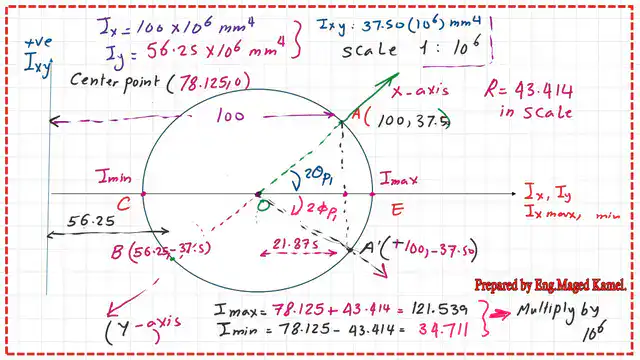 Ix = 100 x10⁶ mm⁴
Iy = 56.25 x10⁶ mm⁴
Ixy: 37.50(10⁶) mm⁴
scale 1 : 10⁶
+ve
Ixy
Center point (78.125,0)
X-axis
R = 43.414
in scale
100
A (100, 37.5)
Imin
2θp1
Imax
C
O
2φp1
E
Ix, Iy
Ix max, min
56.25
B (56.25, -37.5)
21.875
A' (+100, -37.50)
Prepared by Eng.Maged Kamel.
(Y-axis
)
Imax = 78.125 + 43.414 = 121.539
Imin = 78.125 - 43.414 = 34.711
Multiply by
10⁶